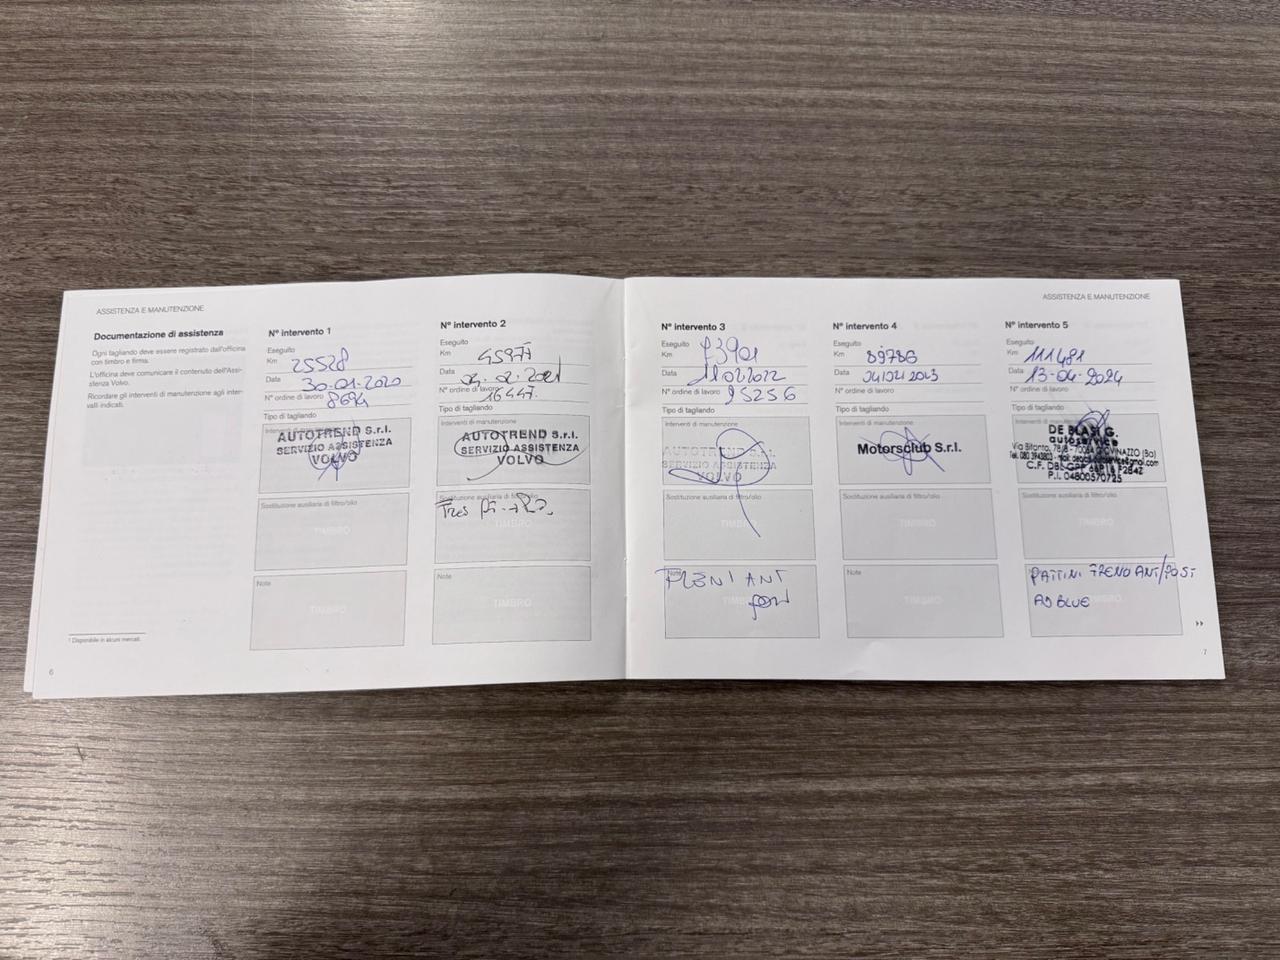 ASSISTENZA E MANUTENZIONE
Documentazione di assistenza
Ogni tagliando deve essere registrato dall'officina
con timbro e firma.
L'officina deve comunicare il contenuto dell'Assi-
stenza Volvo.
Ricordare gli interventi di manutenzione agli inter-
valli indicati.
1 Disponibile in alcuni mercati.
6
N° intervento 1
Eseguito
Km 25528
Data 30-01-2020
N° ordine di lavoro 8694
Tipo di tagliando
Interventi di manutenzione
AUTOTREND S.r.l.
SERVIZIO ASSISTENZA
VOLVO
Sostituzione ausiliaria di filtro/olio
TIMBRO
Note
TIMBRO
N° intervento 2
Eseguito
Km 45977
Data 02-2021
N° ordine di lavoro 16447.
Tipo di tagliando
Interventi di manutenzione
AUTOTREND S.r.l.
SERVIZIO ASSISTENZA
VOLVO
Sostituzione ausiliaria di filtro/olio
TIMBRO
Note
TIMBRO
ASSISTENZA E MANUTENZIONE
N° intervento 3
Eseguito
Km 73901
Data 11022022
N° ordine di lavoro 25256
Tipo di tagliando
Interventi di manutenzione
AUTOTREND S.r.l.
SERVIZIO ASSISTENZA
VOLVO
Sostituzione ausiliaria di filtro/olio
TIMBRO
Note
ANT
TIMBRO
N° intervento 4
Eseguito
Km 89786
Data
N° ordine di lavoro
Tipo di tagliando
Interventi di manutenzione
Motorsclub S.r.l.
Sostituzione ausiliaria di filtro/olio
TIMBRO
Note
TIMBRO
N° intervento 5
Eseguito
Km 111481
Data 13-04-2024
N° ordine di lavoro
Tipo di tagliando
Interventi di manutenzione
DE BLASI G.
autoservice
Via Bitonto, 78/B - 70054 GIOVINAZZO (Ba)
P.I. 04800570725
Sostituzione ausiliaria di filtro/olio
TIMBRO
Note
PATTINI FRENO ANT/POST
AD BLUE
TIMBRO
7